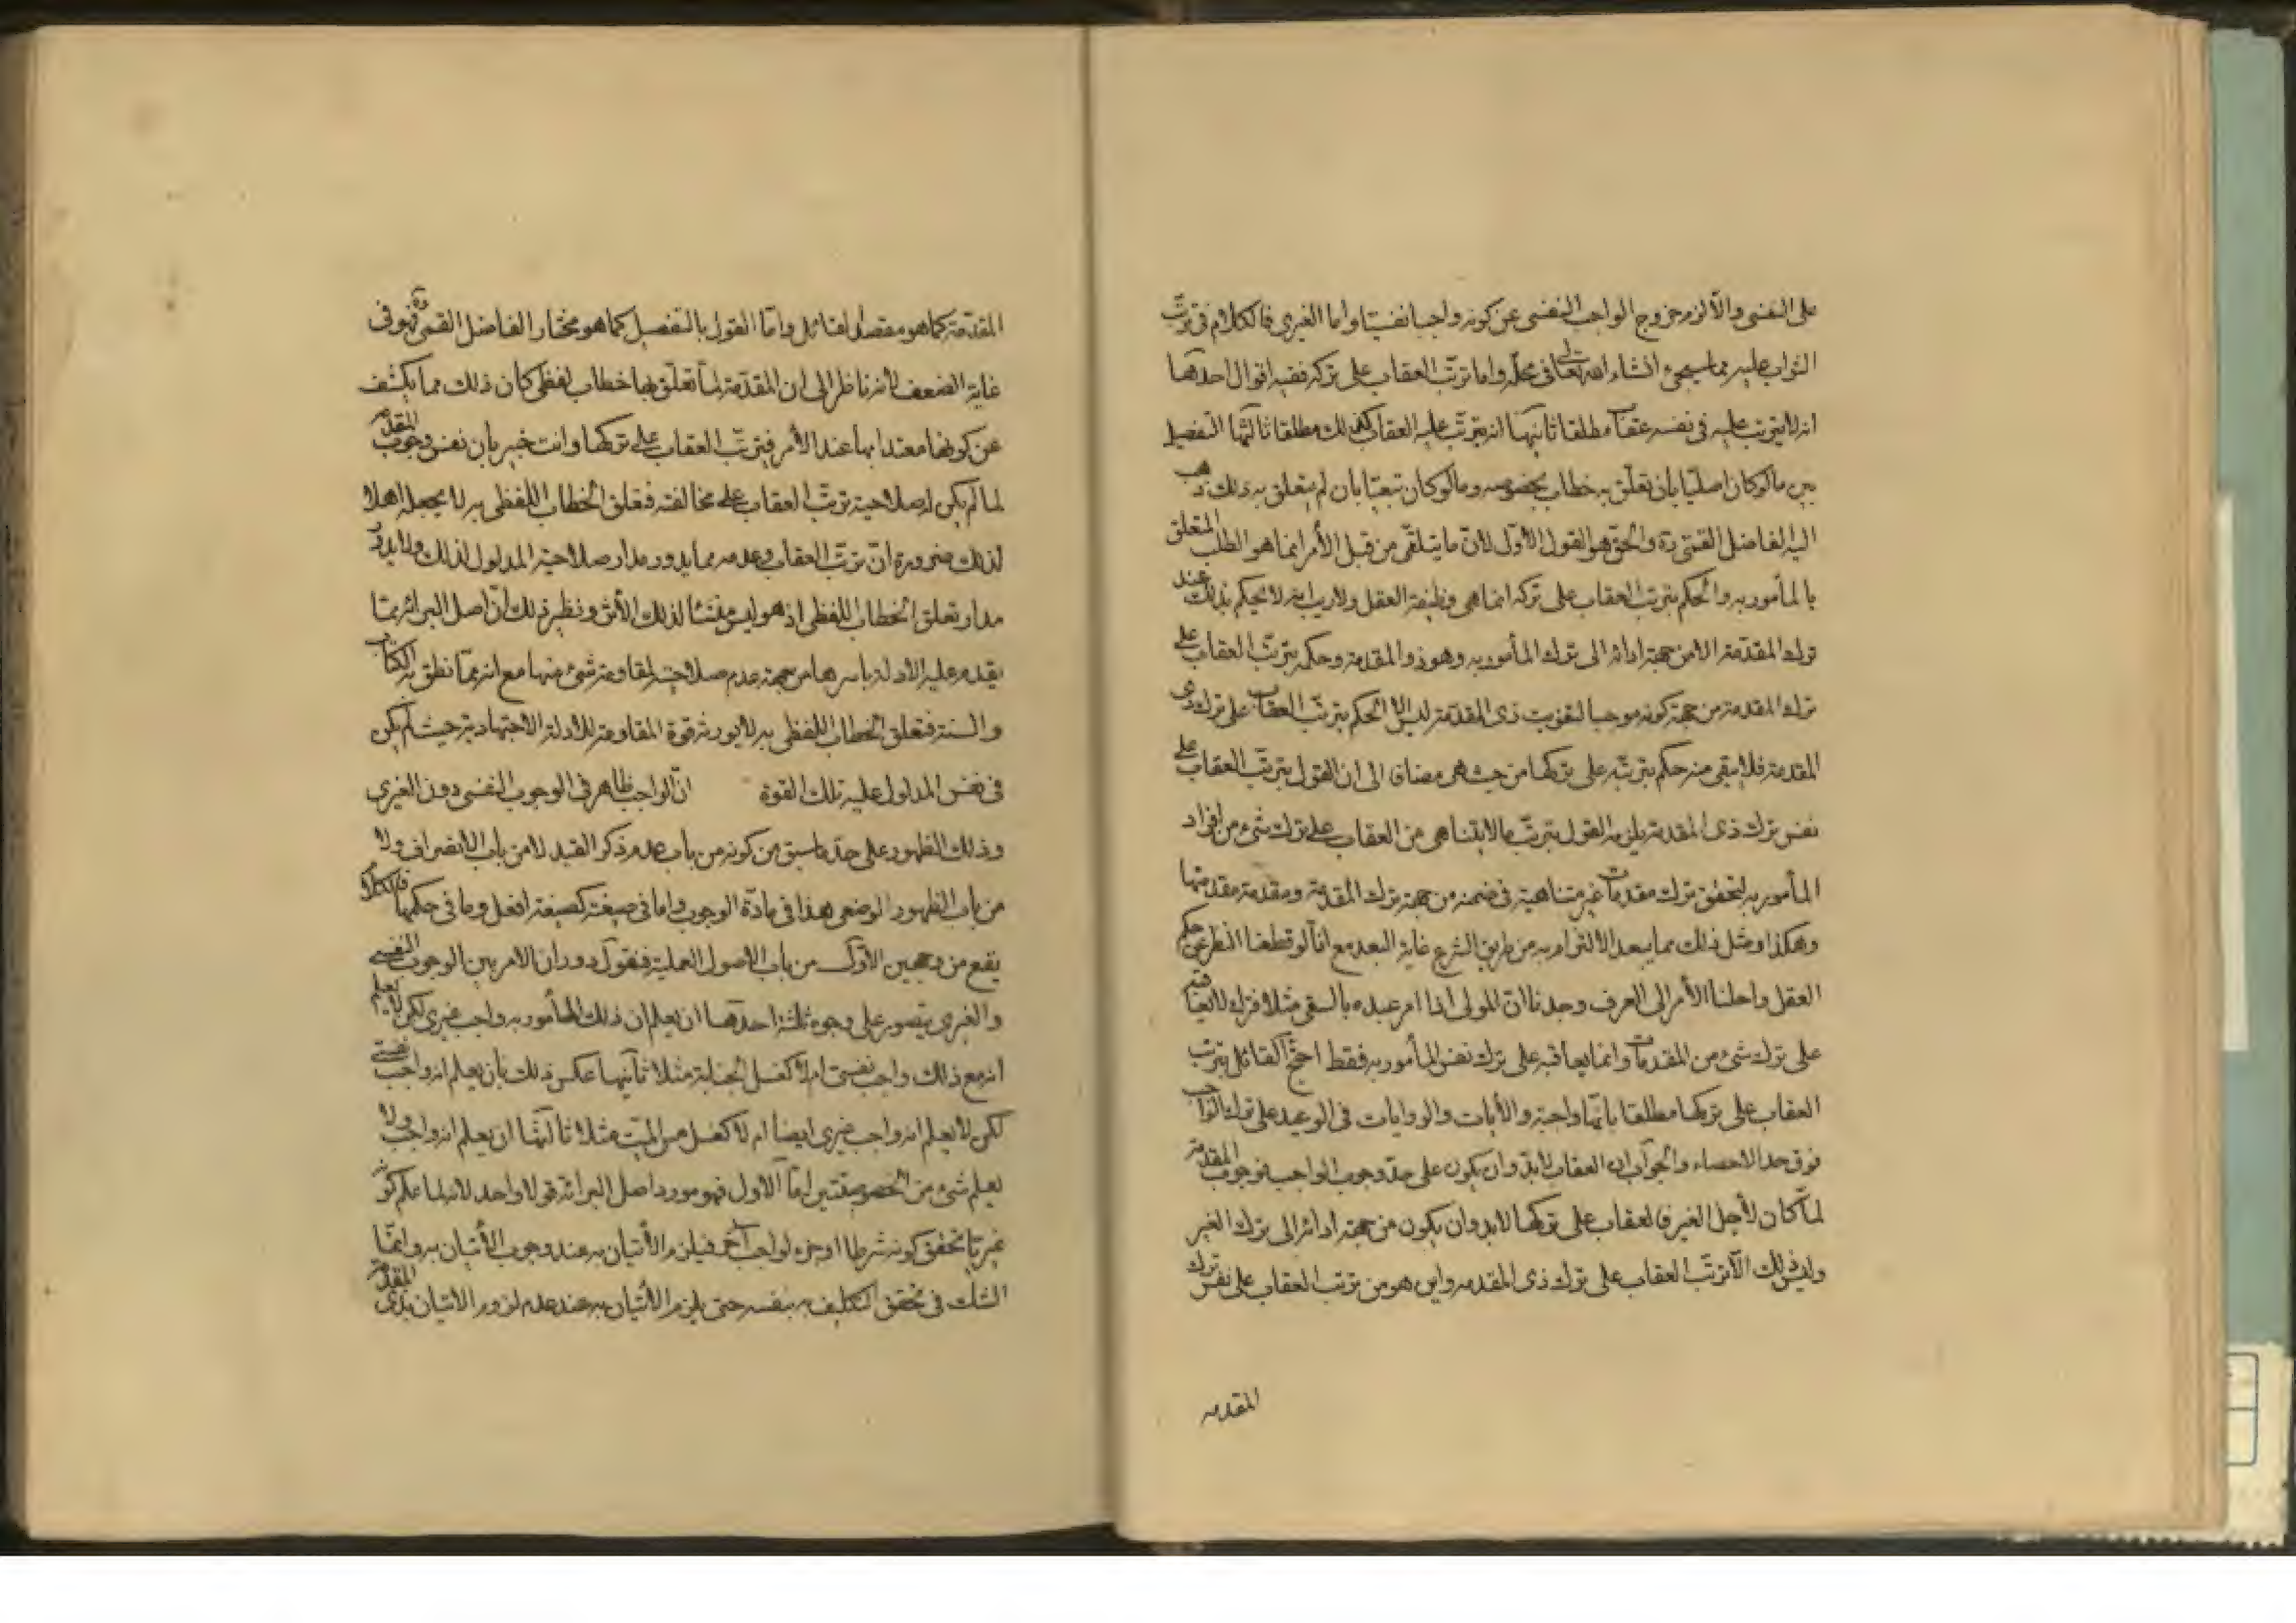 على النفسى والّا لزم خروج الواجب النفسى عن كونه واجبا نفسيّا واما الغيرى فالكلام فى ترتّب
الثواب عليه مما سيجىء انشاء الله تعالى فى محلّه واما ترتّب العقاب على تركه ففيه اقوال احدها
انه لا يترتب عليه فى نفسه عقاب مطلقا ثانيها انه يترتّب عليه العقاب كذلك مطلقا ثالثها التفصيل
بين ما لو كان اصليّا بان تعلّق به خطاب بخصوصه وما لو كان تبعيّا بان لم يتعلق به ذلك ذهب
اليه الفاضل القمّى ره والحقّ هو القول الاوّل لانّ ما يتلقّى من قبل الأمر انما هو الطلب المتعلق
بالمأمور به والحكم بترتب العقاب على تركه انما هى وظيفة العقل ولا ريب انه لا يحكم بذلك عند
ترك المقدّمة الا من جهة ادائه الى ترك المأمور به وهو ذو المقدمة وحكمه بترتّب العقاب على
ترك المقدمة من جهة كونه موجبا لتفويت ذى المقدّمة ليس الّا الحكم بترتّب العقاب على ترك ذى
المقدمة فلا يبقى منه حكم بترتّبه على تركها من حيث هى مضافا الى ان القول بترتّب العقاب على
نفس ترك ذى المقدمة يلزمه القول بترتّب ما لا يتناهى من العقاب على ترك شىء من افراد
المأمور به لتحقق ترك مقدمات غير متناهية فى ضمنه من جهة ترك المقدمة ومقدمة مقدمتها
وهكذا ومثل ذلك مما يبعد الالتزام به من طريق الشرع غاية البعد مع انّا لو قطعنا النظر عن حكم
العقل واحلنا الأمر الى العرف وجدنا انّ المولى اذا امر عبده بالسقى مثلا فترك لا يعاقبه
على ترك شىء من المقدمات وانما يعاقبه على ترك نفس المأمور به فقط احتجّ القائل بترتب
العقاب على تركها مطلقا بانّها واجبة والأيات والروايات فى الوعيد على ترك الواجب
فوق حد الاحصاء والجواب ان العقاب لابدّ وان يكون على حدّ وجوب الواجب فوجوب المقدمة
لمّا كان لأجل الغير فالعقاب على تركها لابد وان يكون من جهة ادائه الى ترك الغير
وليس ذلك الّا ترتّب العقاب على ترك ذى المقدمه واين هو من ترتب العقاب على نفس ترك
المقدمه
المقدّمة كما هو مقصد القائل وامّا القول بالتفصيل كما هو مختار الفاضل القمى ره فهو فى
غاية الضعف لأنه ناظر الى ان المقدّمة لمّا تعلّق بها خطاب لفظى كان ذلك مما يكشف
عن كونها معتدا بها عند الأمر فيترتّب العقاب على تركها وانت خبير بان نفس وجوب المقدمة
لما لم يكن له صلاحية ترتّب العقاب على مخالفته فتعلق الخطاب اللفظى به لا يجعله اهلا
لذلك ضرورة انّ ترتّب العقاب وعدمه مما يدور مدار صلاحية المدلول لذلك ولا يدور
مدار تعلق الخطاب اللفظى اذ هو ليس منشئا لذلك الأثر ونظير ذلك انّ اصل البرائة ممّا
يقدم عليه الادلة باسرها من جهة عدم صلاحيته لمقاومة شىء منها مع انه ممّا نطق به الكتاب
والسنة فتعلق الخطاب اللفظى به لا يورث قوة المقاومة للادلة الاجتهادية حيث لم يكن
فى نفس المدلول عليه تلك القوة انّ الواجب ظاهر فى الوجوب النفسى دون الغيرى
وذلك الظهور على حدّ ما سبق من كونه من باب عدم ذكر القيد لا من باب الانصراف ولا
من باب الظهور الوضعى هذا فى مادّة الوجوب واما فى صيغته كصيغة افعل وما فى حكمها فالكلام
يقع من وجهين الأوّل من باب الاصول العملية فنقول دوران الامر بين الوجوب النفسى
والغيرى يتصور على وجوه ثلثة احدها ان يعلم ان ذلك المأمور به واجب غيرى لكن لا يعلم
انه مع ذلك واجب نفسى ام لا كغسل الجنابة مثلا ثانيها عكس ذلك بان يعلم انه واجب نفسى
لكن لا يعلم انه واجب غيرى ايضا ام لا كغسل مسّ الميّت مثلا ثالثها ان يعلم انه واجب ولا
يعلم شىء من الخصوصيّتين امّا الأول فهو مورد اصل البرائة قولا واحد لانا علم كونه
غيريّا تحقق كونه شرطا او جزء لواجب آخر فيلزم الأتيان به عند وجوب الأتيان به وانّما
الشك فى تحقق التكليف به بنفسه حتى يلزم الأتيان به عند عدم لزوم الاتيان بذى المقدمة